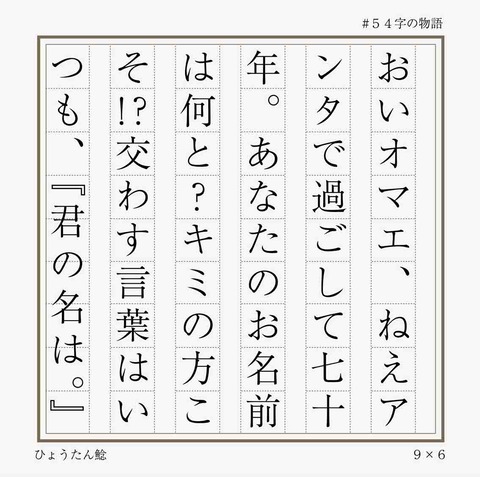 #54字の物語
おいオマエ、ねえア
ンタで過ごして七十
年。あなたのお名前
は何と?キミの方こ
そ!?交わす言葉はい
つも、『君の名は。』
ひょうたん鯰
9×6